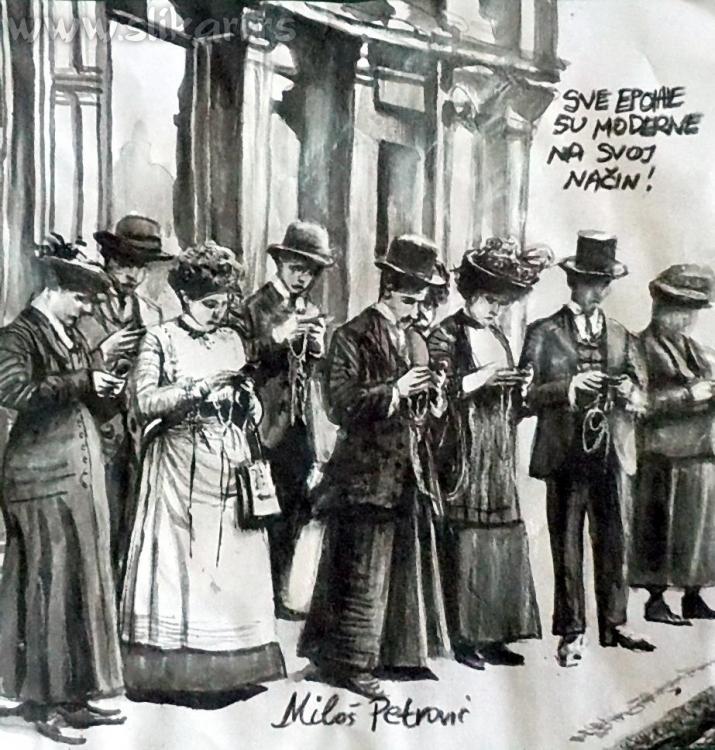 www.slikari.rs
SVE EPOHE
SU MODERNE
NA SVOJ
NAČIN!
Miloš Petrović